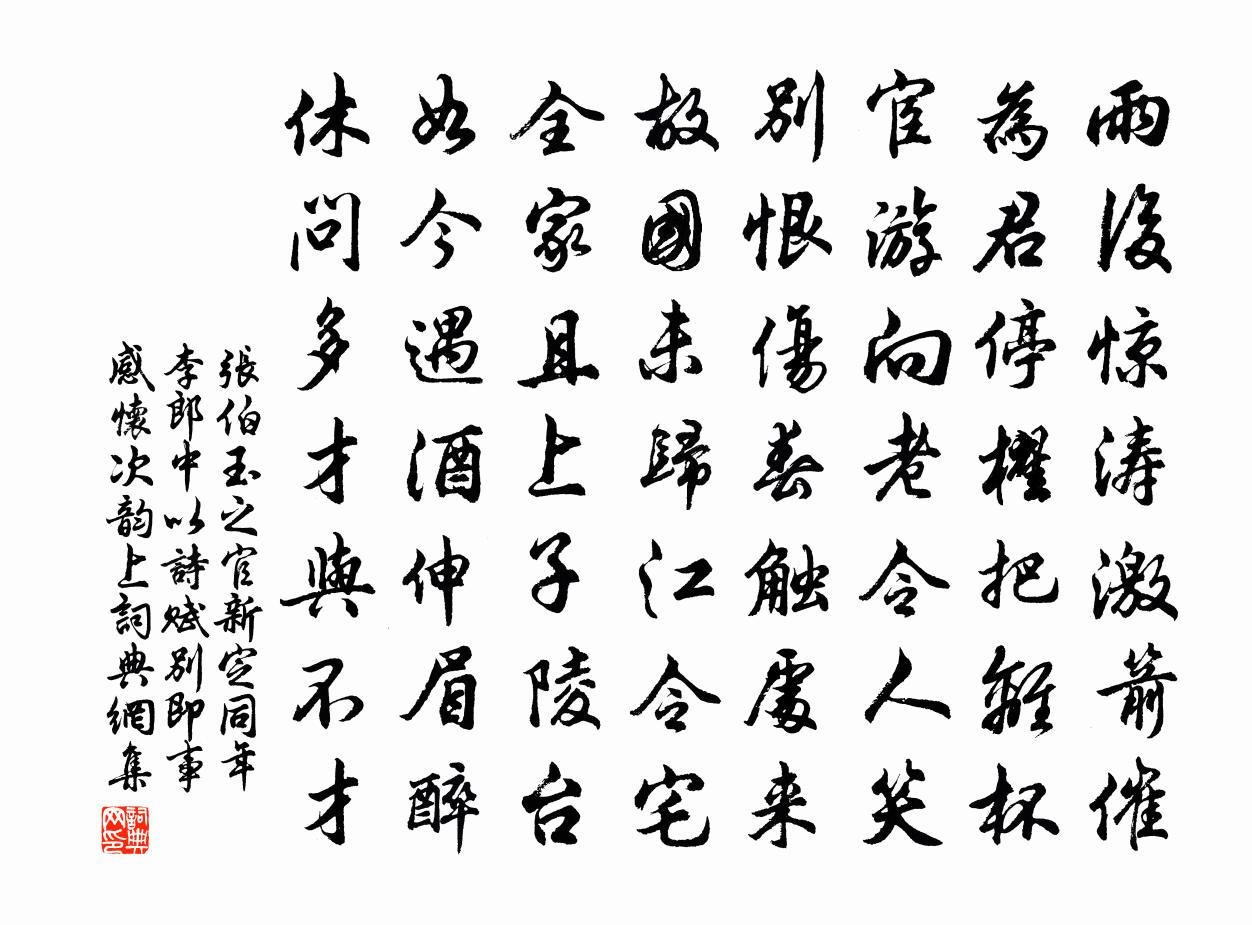 雨後惊涛激箭催
為君停櫂把離杯
宦游向老令人笑
別恨傷春触處来
故國未歸江令宅
全家且上子陵台
如今遇酒伸眉醉
休問多才與不才
張伯玉之官新定同年
李郎中以詩賦別即事
感懷次韵上詞典網集
詞典網印